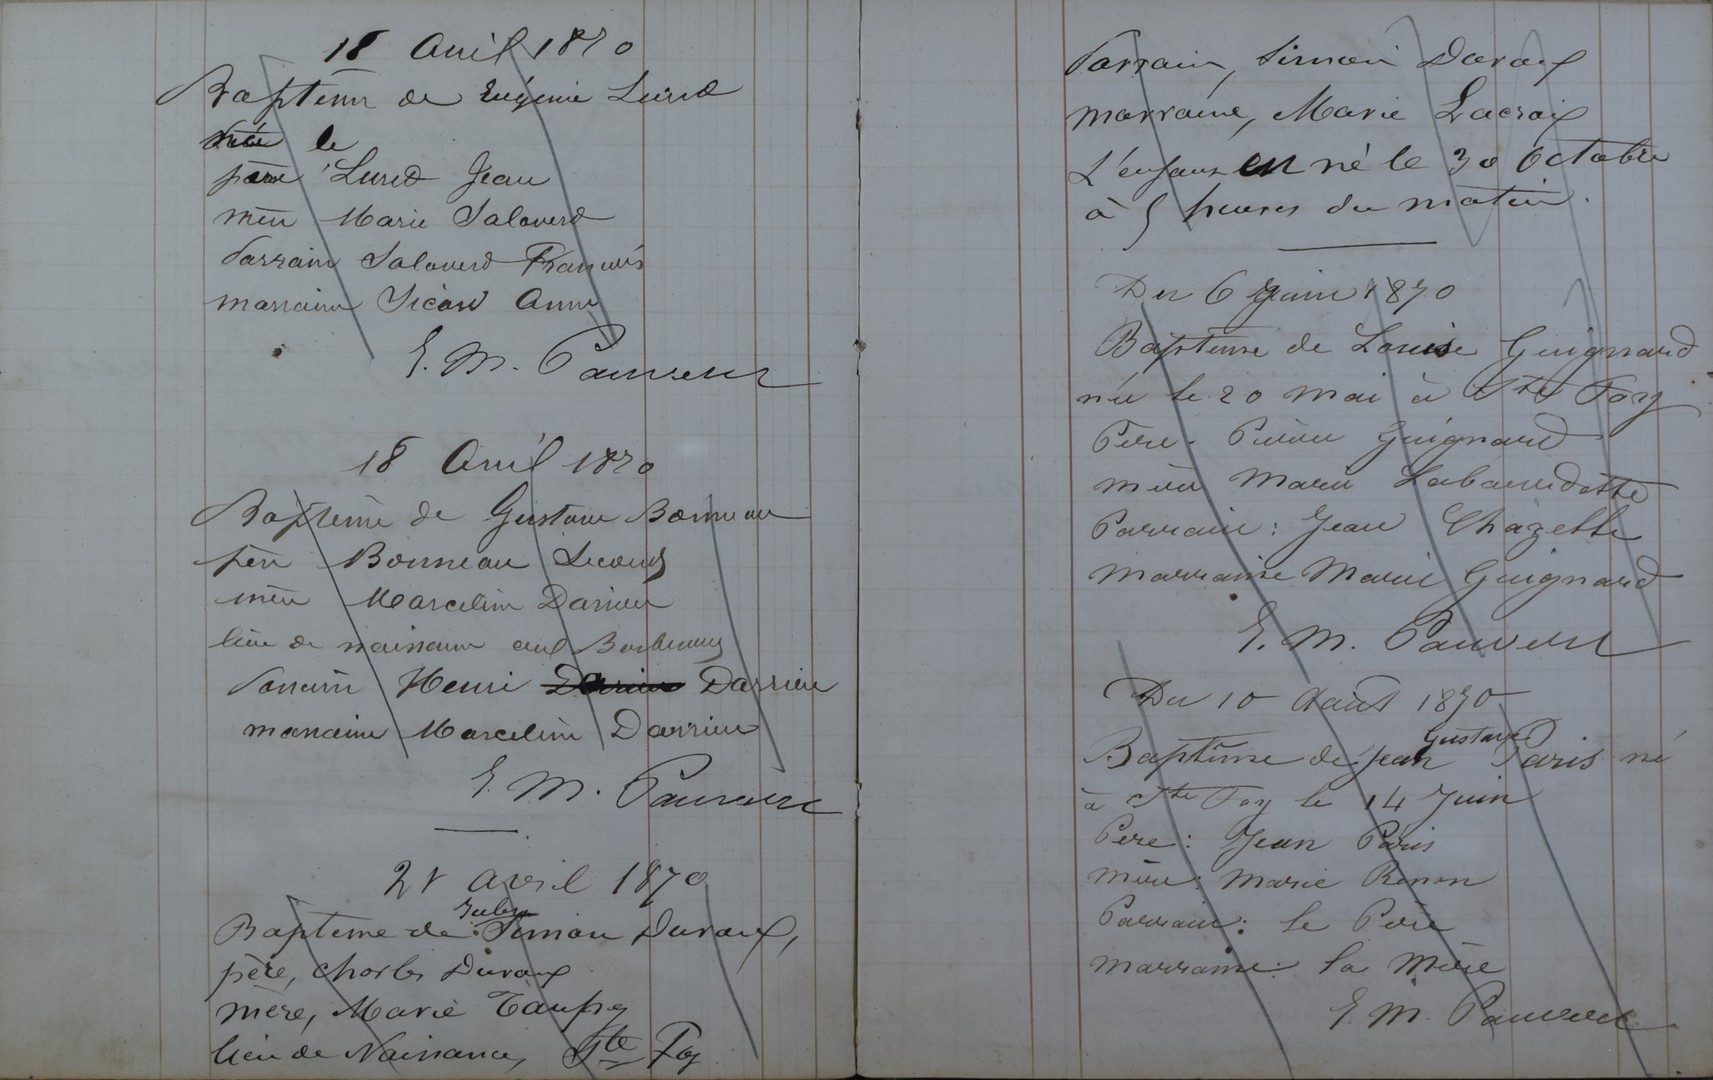 18 Avril 1870
Baptême de Eugénie Lured
née le
père Lured Jean
mère Marie Salaverd
Parrain Salaverd Francois
marraine Anne
E. M. Pauvert
18 Avril 1870
Baptême de Gustave Bonneau
père Bonneau Second
mère Marceline Darrieu
lieu de naissance aux
Parrain Henri Darrieu
marraine Marceline Darrieu
E. M. Pauvert
21 avril 1870
Baptême de Simon Duraux,
père, Charles Duraux
mère, Marie
lieu de Naissance, Ste Foy
Parrain, Simon Duraux
marraine, Marie Lacroix
L'enfant est né le 30 Octobre
à 5 heures du matin.
Du 6 Juin 1870
Baptême de Louise Guignard
née le 20 mai à Ste Foy
Père. Pierre Guignard
mère Marie Labauredotte
Parrain : Jean Chazelle
marraine Marie Guignard
E. M. Pauvert
Du 10 Aout 1870
Gustave
Baptême de Jean Paris né
à Ste Foy le 14 Juin
Père : Jean Paris
mère : Marie Renon
Parrain : le Père
marraine : la Mère
E. M. Pauvert